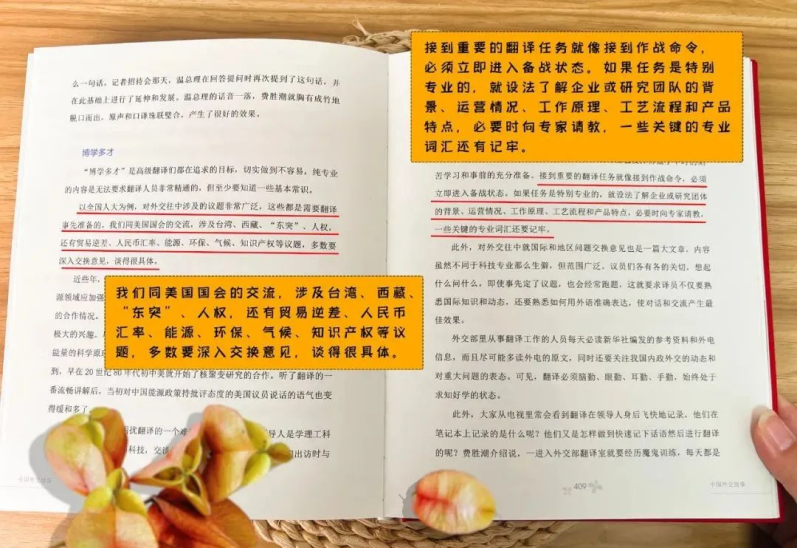 么一句话。记者招待会那天，温总理在回答提问时再次提到了这句话，并
在此基础上进行了延伸和发展。温总理的话音一落，费胜潮就胸有成竹地
脱口而出，原声和口译珠联璧合，产生了很好的效果。
博学多才
“博学多才”是高级翻译们都在追求的目标，切实做到不容易，纯专业
的内容是无法要求翻译人员非常精通的，但至少要知道一些基本常识。
以全国人大为例，对外交往中涉及的议题非常广泛，这些都是需要翻译
事先准备的。我们同美国国会的交流，涉及台湾、西藏、“东突”、人权，
还有贸易逆差、人民币汇率、能源、环保、气候、知识产权等议题，多数要
深入交换意见，谈得很具体。
近些年，
源领域应加强
的合作情况。
极大的兴趣。
能量的科学原
我们同美国国会的交流，涉及台湾、西藏、
“东突”、人权，还有贸易逆差、人民币
汇率、能源、环保、气候、知识产权等议
题，多数要深入交换意见，谈得很具体。
到，早在20世纪80年代初中美就开始了核聚变研究的合作。听了翻译的一
番流畅讲解后，当初对中国能源政策持批评态度的美国议员说话的语气也变
得缓和多了。
困扰翻译的一个难
导人是学理工科
科技，交流
出访时与
中国外交故事
接到重要的翻译任务就像接到作战命令，
必须立即进入备战状态。如果任务是特别
专业的，就设法了解企业或研究团队的背
景、运营情况、工作原理、工艺流程和产品
特点，必要时向专家请教，一些关键的专业
词汇还有记牢。
苦学习和事前的充分准备。接到重要的翻译任务就像接到作战命令，必须
立即进入备战状态。如果任务是特别专业的，就设法了解企业或研究团体
的背景、运营情况、工作原理、工艺流程和产品特点，必要时向专家请教，
一些关键的专业词汇还要记牢。
此外，对外交往中就国际和地区问题交换意见也是一篇大文章，内容
虽然不同于科技专业那么生僻，但范围广泛，议员们各有各的关切，想起
什么问什么，即使事先定了议题，也会经常跑题，这就要求译员不仅要熟
悉国际知识和动态，还要熟悉如何用外语准确表达，使对话和交流产生最
佳效果。
外交部里从事翻译工作的人员每天必读新华社编发的参考资料和外电
信息，而且尽可能多读外电的原文，同时还要关注我国内政外交的动态和
对重大问题的表态。可见，翻译必须脑勤、眼勤、耳勤、手勤，始终处于
求知好学的状态。
此外，大家从电视里常会看到翻译在领导人身后飞快地记录，他们在
笔记本上记录的是什么呢？他们又是怎样做到快速记下话语然后进行翻译
的呢？费胜潮介绍说，一进入外交部翻译室就要经历魔鬼训练，每天都是
409
中国外交故事